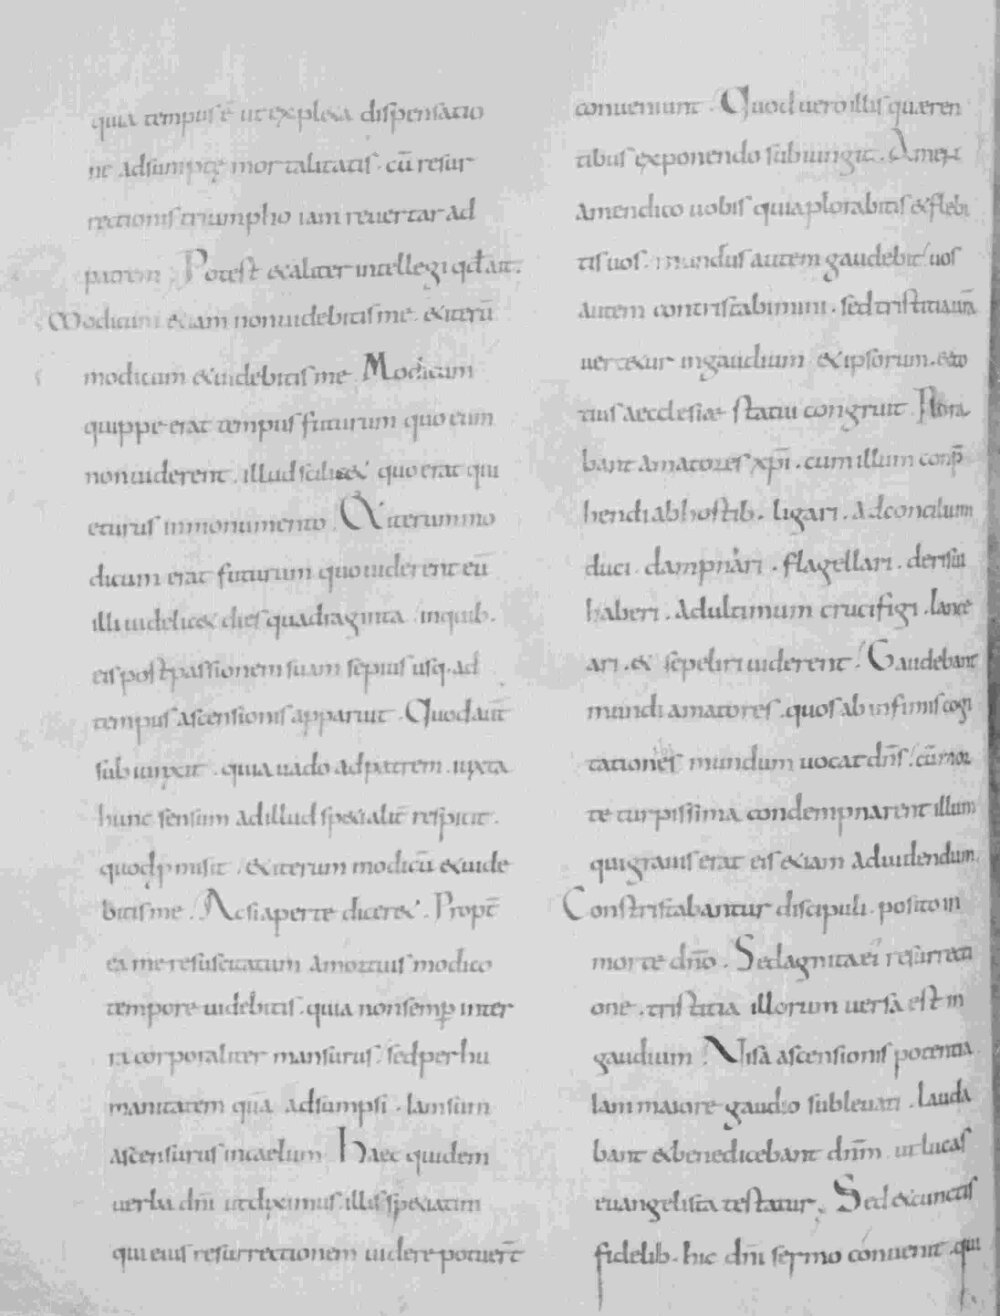 quia tempus ē ut expleta dispensatio
ne adsumptę mortalitatis · cū resur
rectionis triumpho iam revertar ad
patrem · Potest & aliter intellegi qđ ait ·
Modicum & iam non uidebitis me · & iterū
modicum & uidebitis me · Modicum
quippe erat tempus futurum quo eum
non uiderent · illud scilic& quo erat qui
eturus in monumento · & iterum mo
dicum erat futurum quo uiderent eū
illi uidelic& dies quadraginta · in quib·
eis post passionem suam sepius usq· ad
tempus ascensionis apparuit · Quod aut̄
subiunxit · quia uado ad patrem · iuxta
hunc sensum ad illud specialit̄ respicit ·
quod p̱misit · & iterum modicū & uide
bitis me · Ac si aperte dicer& · Propt̄
ea me resuscitatum a mortuis modico
tempore uidebitis · quia non semp̱ in ter
ra corporaliter mansurus · sed per hu
manitatem quā adsumpsi · Iam sum
ascensurus in caelum · Haec quidem
uerba dn̄i ut diximus · illis speciatim
qui eius resurrectionem uidere potuer̄t
conueniunt · Quod uero illis quæren
tibus exponendo subiungit · Amen
amen dico uobis quia plorabitis & flebi
tis uos · mundus autem gaudebit · uos
autem contristabimini · sed tristitia ur̄a
uertetur in gaudium · & ipsorum · & to
tius aecclesiæ statui congruit · Plora
bant amatores xp̄i · cum illum conp̄
hendi ab hostib · ligari · ad concilium
duci · dampnari · flagellari · derisui
haberi · ad ultimum crucifigi · lance
ari · & sepeliri uiderent · Gaudebant
mundi amatores · quos ab infimis cogi
tationes mundum uocat dn̄s · cū mor
te turpissima condempnarent illum
qui grauis erat eis &iam ad uidendum ·
Constristabantur discipuli · posito in
morte dn̄o · Sed agnita ei resurrecti
one · tristitia illorum uersa est in
gaudium · Uisa ascensionis potentia
Iam maiore gaudio subleuati · Lauda
bant & benedicebant dn̄m · ut lucas
euangelista testatur · Sed & cunctis
fidelib · hic dn̄i sermo conuenit · qui